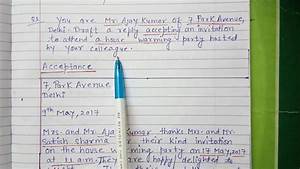 Q1. You are Mr. Ajay Kumar of 7 Park Avenue,
Delhi. Draft a reply accepting an invitation
to attend a house warming party hosted
by your colleague.
Acceptance
7, Park Avenue
Delhi
9th May, 2017
Mrs. and Mr. Ajay Kumar thanks Mrs. and Mr.
Satish Sharma for their kind invitation
on the house warming party on 17 May, 2017
at 11 am. They are happy delighted to